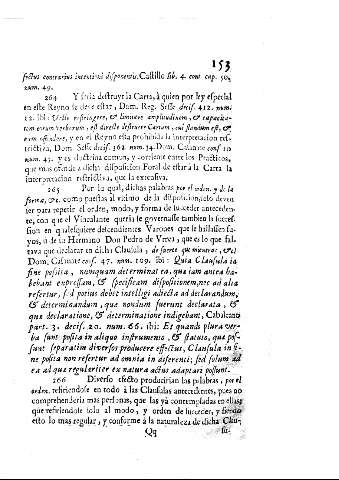 153
fectus contrarius intentioni disponentis. Castillo lib. 4. cont. cap. 50.
num. 49.
264 Y seria destruyr la Carta, à quien por ley especial
en este Reyno se deve estar, Dom. Reg. Sesse decis. 412. num.
12. ibi: Velle restringere, & limitare amplitudinem, & capacita-
tem eorum verborum, est directe destruere Cartam, cui standum est, &
eam offendere, y en el Reyno esta prohibida la interpretacion res-
trictiva, Dom. Sesse decis. 362. num. 34. Dom. Casanate cons. 10
num. 43. y es doctrina comun, y corriente entre los Practicos,
que mas ofende a dicha disposicion Foral de estar à la Carta la
interpretacion restrictiva, que la extensiva.
265 Por la qual, dichas palabras por el orden, y de la
forma, &c. como puestas al vltimo de la disposicion, solo deven
ser para repetir el orden, modo, y forma de suceder antecedente,
y con que el Vinculante queria se governasse tambien la succes-
sion en qualesquiere descendientes Varones que se hallassen su-
yos, ù de su Hermano Don Pedro de Vrries, que es lo que fal-
tava que declarar en dicha Clausula, de suerte que muriere, &c.
Dom. Casanate cons. 47. num. 109. ibi: Quia Clausula in
fine posita, nunquam determinat ea, quæ iam antea ha-
bebant expressam, & specificam dispositionem, nec ad alia
refertur, sed potius debet intelligi adiecta ad declarandum,
& determinandum, quæ nondum fuerunt declarata, &
quæ declaratione, & determinatione indigebant, Cabalcano
part. 3. decis. 20. num. 66. ibi: Et quando plura ver-
ba sunt posita in aliquo instrumento, & statuto, quæ pos-
sunt separatim diversos producere effectus, Clausula in fi-
ne posita non refertur ad omnia in differenti; sed solum ad
ea al quæ regulariter ex natura actus adaptari possunt.
266 Diverso efecto producirian las palabras, por el
orden, refiriendose en todo à las Clausulas antecedentes, pues no
comprehenderia mas personas, que las yà contempladas en ellas,
que refiriendose solo al modo, y orden de suceder, y siendo
esto lo mas regular, y conforme à la naturaleza de dicha Clau-
Qq su-